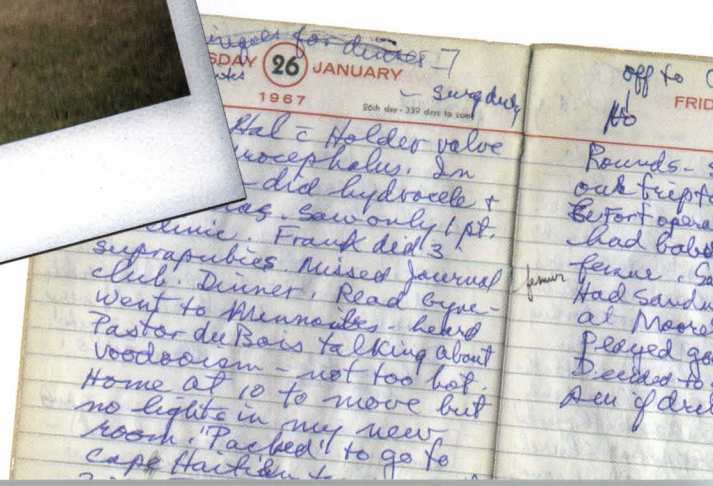 for dinner
SDAY 26 JANUARY
1967
26th day - 339 days to come
- surg duty
Hal c̄ Holder valve
rocephalus. In
- did hydrocele +
Saw only 1 pt.
clinic. Frank did 3
suprapubics. Missed Journal
club. Dinner. Read Gyne-
went to Mennonites - heard
Pastor du Bois talking about
Voodooism - not too hot.
Home at 10 to move but
no lights in my new
room. "Packed" to go to
Cape Haitien
off to
FRID
Rounds - s
out trip to
opera
had bab
femur. Sa
femur
Had Sandw
at Moore
Played go
Decided to